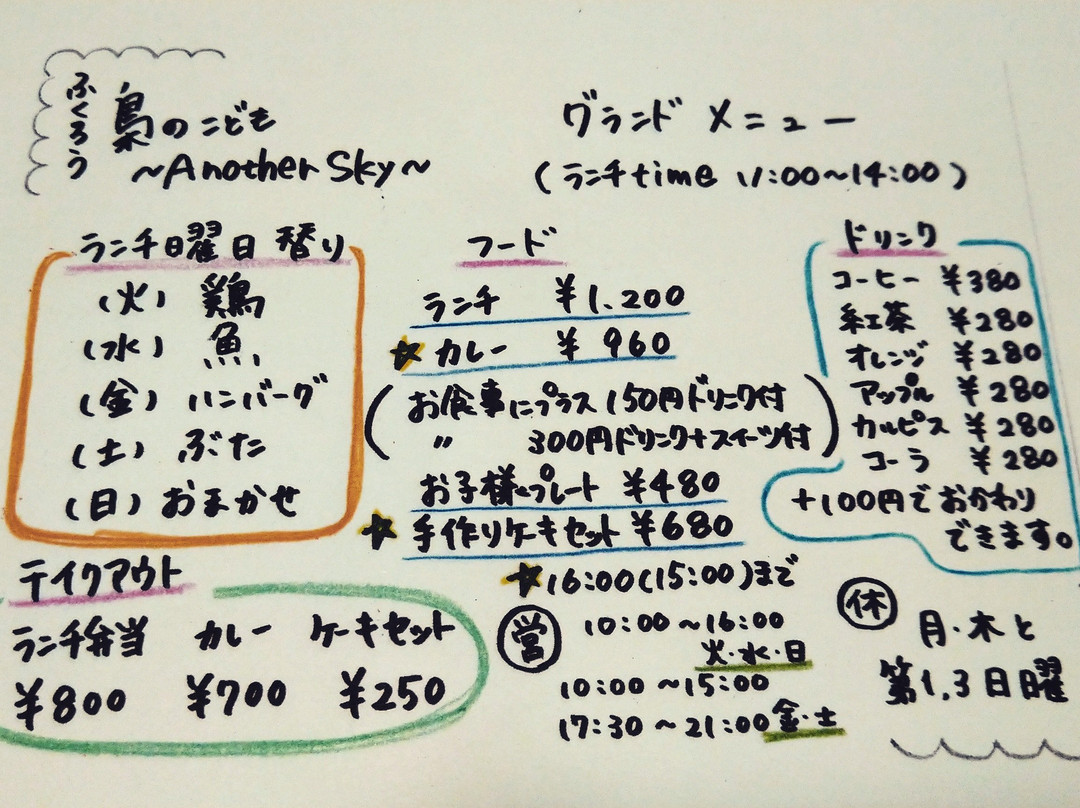 ふくろう
梟のこども
~Another Sky~
グランド メニュー
(ランチtime 11:00~14:00)
ランチ曜日替り
(火) 鶏
(水) 魚
(金) ハンバーグ
(土) ぶた
(日) おまかせ
フード
ランチ ¥1.200
☆カレー ¥960
(お食事にプラス150円ドリンク付
〃 300円ドリンク+スイーツ付)
お子様プレート ¥480
☆手作りケーキセット ¥680
☆16:00(15:00)まで
ドリンク
コーヒー ¥380
紅茶 ¥280
オレンジ ¥280
アップル ¥280
カルピス ¥280
コーラ ¥280
+100円でおかわり
できます。
テイクアウト
ランチ弁当 カレー ケーキセット
¥800 ¥700 ¥250
営 10:00~16:00
火・水・日
10:00~15:00
17:30~21:00 金・土
休 月・木と
第1,3日曜